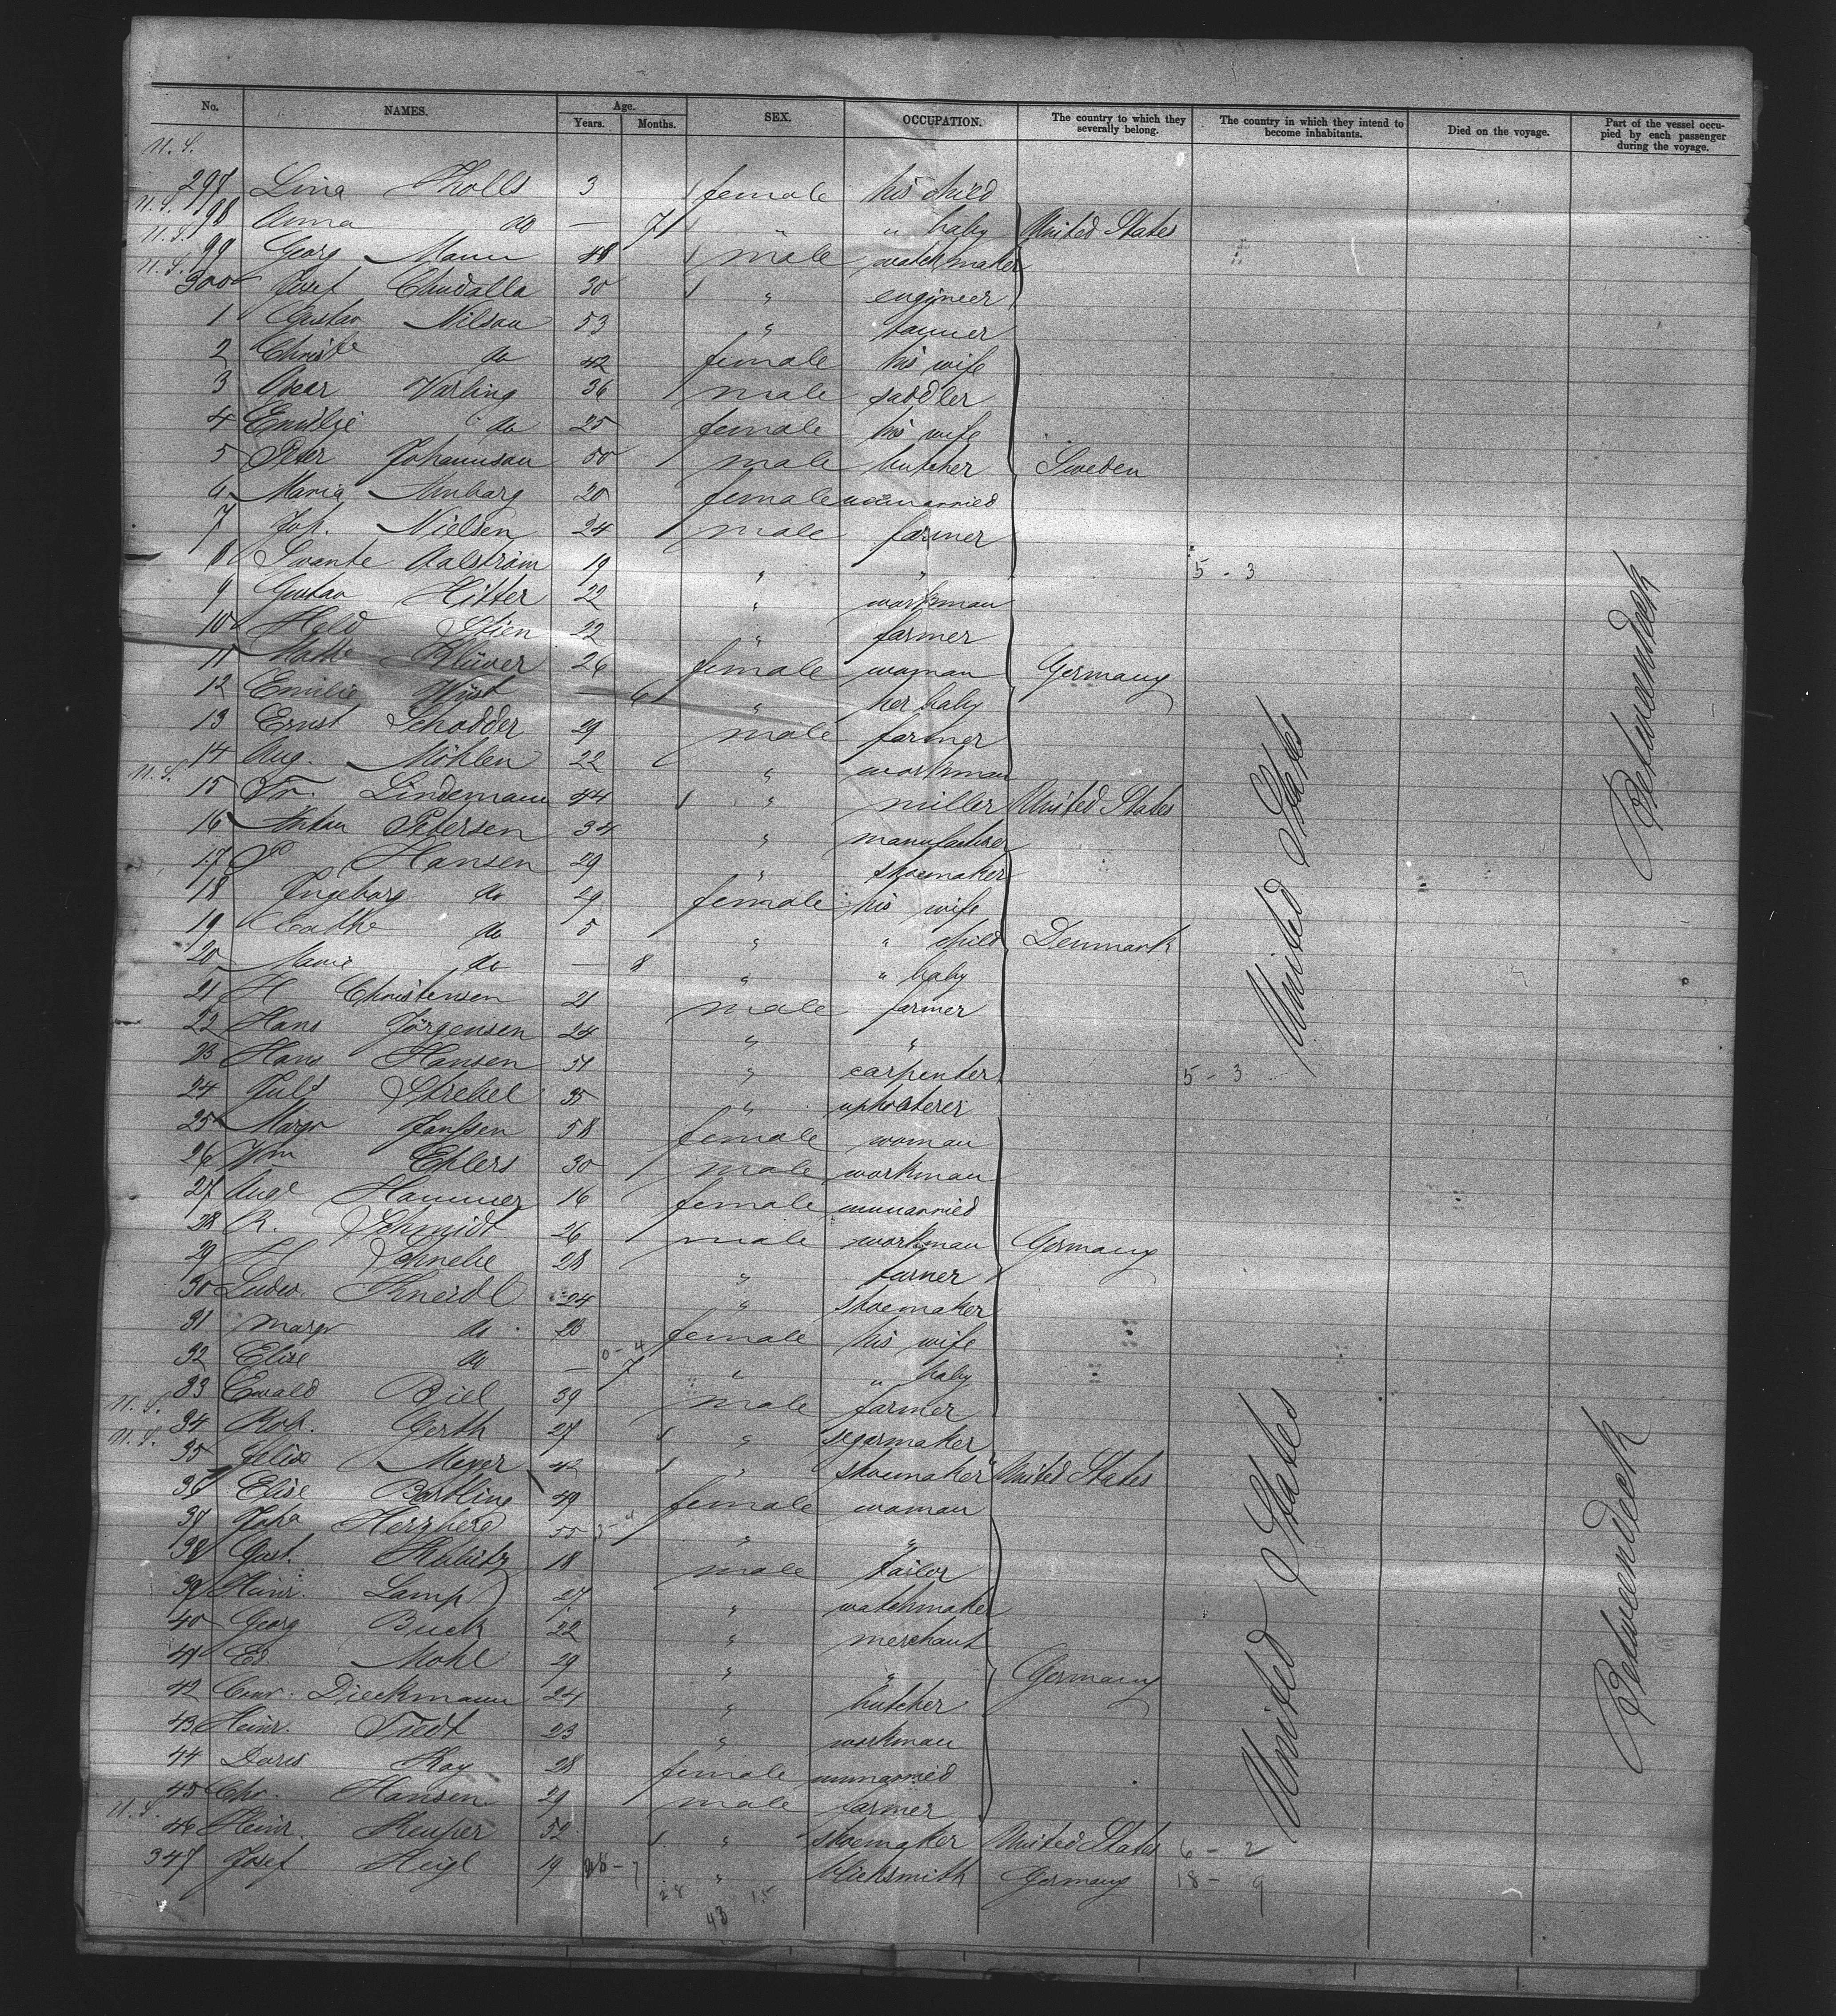 No. NAMES. Age. Years. Months. SEX. OCCUPATION. The country to which they severally belong. The country in which they intend to become inhabitants. Died on the voyage. Part of the vessel occupied by each passenger during the voyage.
U.S.
297 Lina 3 female his child
U.S. 98 Anna do — 7 " " baby United States
U.S. 99 Georg Mann 48 male watchmaker
U.S. 300 Josef Chudalla 30 " engineer
1 Gustav Nilson 53 " tanner
2 Christe do 42 female his wife
3 Oscar Varling 36 male saddler
4 Emilie do 25 female his wife
5 Peter Johannson 50 male butcher Sweden
6 Maria 20 female unmarried
7 Joh. Nielsen 24 male farmer
8 Swante Aalström 19 " " 5 - 3
9 Gustav Hitter 22 " workman
10 Held Stien 22 " farmer
11 Klüver 26 female woman Germany
12 Emilie Wüst — 6 " her baby
13 Ernst Schodder 29 male farmer
14 Aug. Möhlen 22 " workman
U.S. 15 Fr. Lindemann 44 " miller United States
16 Anton Petersen 34 " manufacturer
17 P Hansen 29 " shoemaker
18 Ingeborg do 29 female his wife
19 Cathe do 5 " " child Denmark
20 Marie do — 8 " " baby
21 H Christensen 21 male farmer
22 Hans Jörgensen 24 " "
23 Hans Hansen 51 " carpenter 5 - 3
24 Juls Strebel 35 " upholsterer
25 Margr Janssen 58 female woman
26 Wm Ehlers 30 male workman
27 Auge Hammer 16 female unmarried
28 R. Schmidt 26 male workman Germany
29 H Schnebe 28 " farmer
30 Ludw. 24 " shoemaker
31 Margr do 23 female his wife
32 Elise do — 7 " " baby
33 Ewald Biel 39 male farmer
U.S. 34 Rob. Gerth 27 " segarmaker
U.S. 35 Felix Meyer 42 " shoemaker United States
36 Elise Bartling 49 female woman
37 Joha Herzberg 55 " "
38 Gust. 18 male tailor
39 Heinr. Lamp 27 " watchmaker
40 Georg Buck 22 " merchant
41 Ed Mohl 29 " " Germany
42 Conr. Dieckmann 24 " butcher
43 Heinr. Tiedt 23 " workman
44 Doris Kay 28 female unmarried
45 Chr. Hansen 29 male farmer
U.S. 46 Heinr. Keuper 52 " shoemaker United States 6 - 2
347 Josef Heigl 19 " blacksmith Germany 18 - 9
28 15
43
United States
Betweendeck
United States
Betweendeck